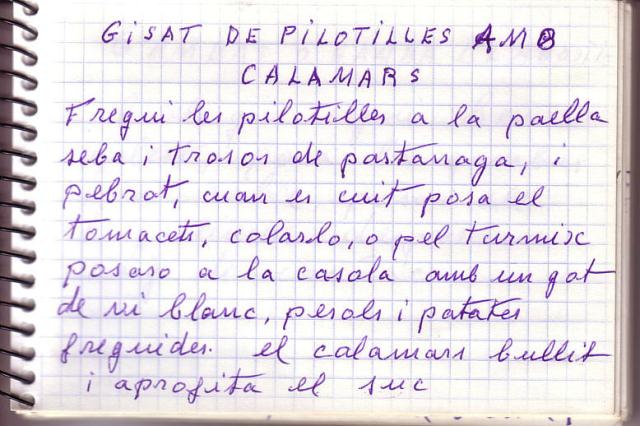 GISAT DE PILOTILLES AMB
CALAMARS
Fregui les pilotilles a la paella
seba i trosos de pastanaga, i
pebrot, cuan es cuit posa el
tomacets, colarlo, o pel turmix
posaro a la casola amb un got
de vi blanc, pesols i patates
freguides. el calamars bullit
i aprofita el suc